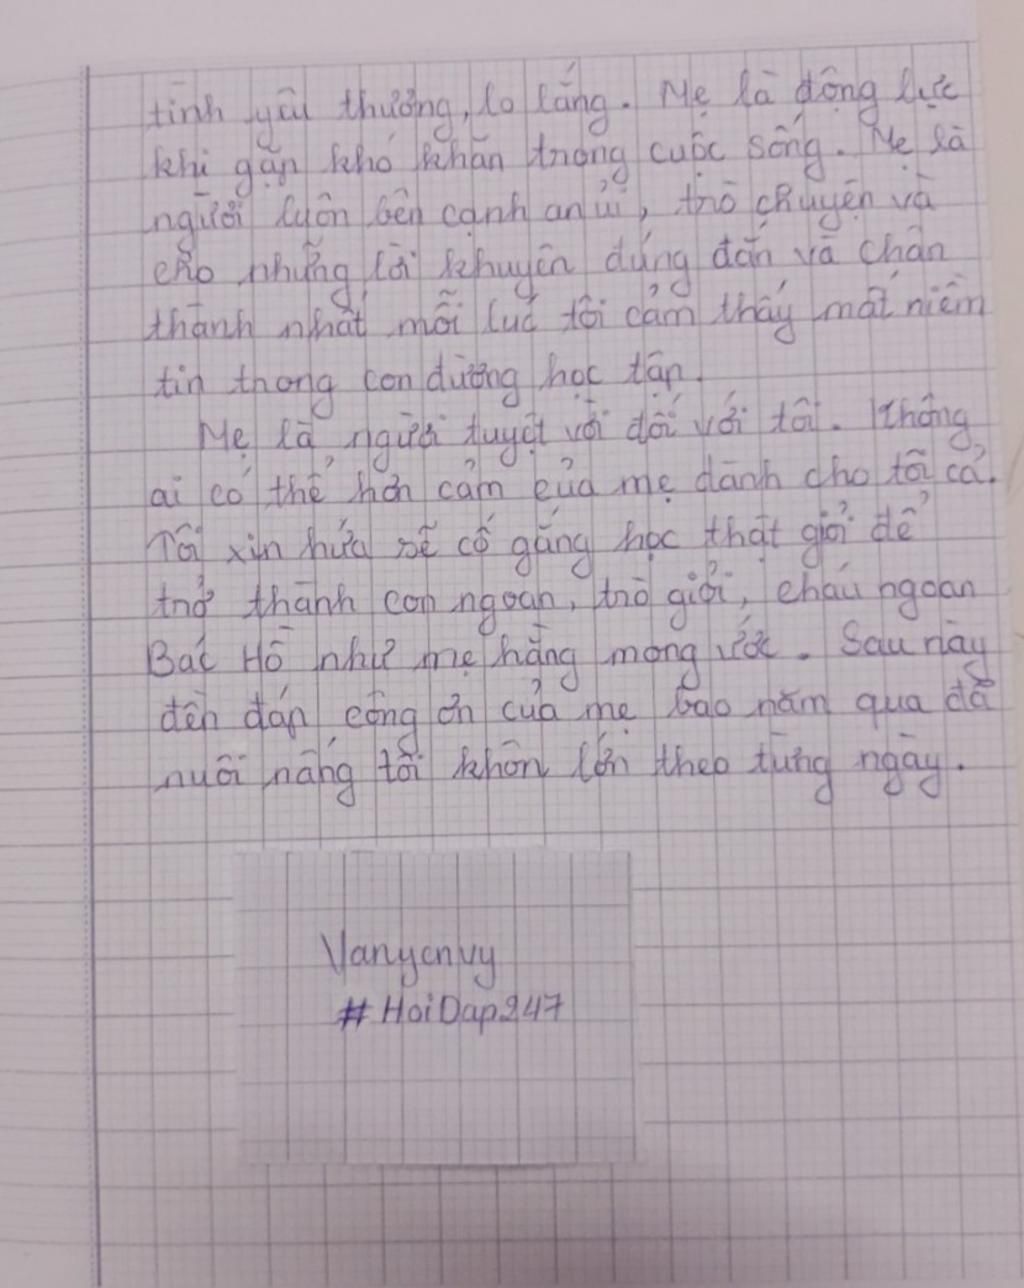 tình yêu thương, lo lắng. Mẹ là động lực
khi gặp khó khăn trong cuộc sống. Mẹ là
người luôn bên cạnh an ủi, trò chuyện và
cho những lời khuyên đúng đắn và chân
thành nhất mỗi lúc tôi cảm thấy mất niềm
tin trong con đường học tập.
Mẹ là người tuyệt vời đối với tôi. Không
ai có thể hơn cảm của mẹ dành cho tôi cả.
Tôi xin hứa sẽ cố gắng học thật giỏi để
trở thành con ngoan, trò giỏi, cháu ngoan
Bác Hồ như mẹ hằng mong ước. Sau này
đền đáp công ơn của mẹ bao năm qua đã
nuôi nấng tôi khôn lớn theo từng ngày.
Vanycnvy
#HoiDap247